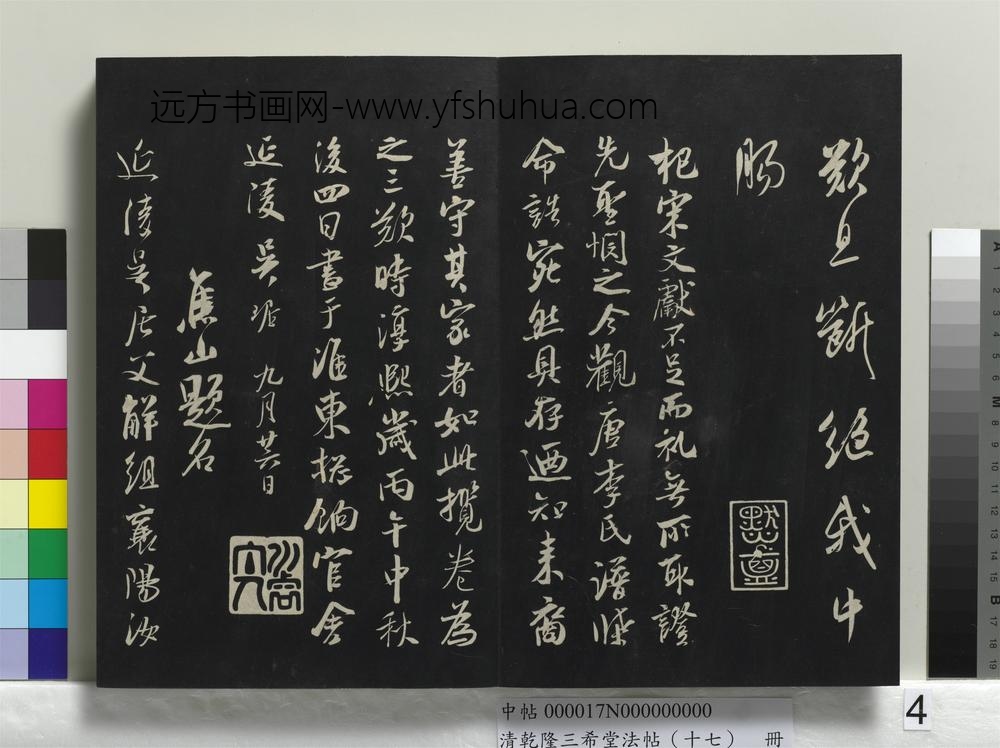 远方书画网-www.yfshuhua.com
歎且斷絕我中
腸
杞宋文獻不足而礼無所取證
先聖憫之今觀唐李氏譜牒
命誥宛然具存迺知来裔
善守其家者如此攬卷為
之三歎時淳熙歲丙午中秋
後四日書于淮東總餉官舍
延陵吴琚 九月廿六日
焦山題名
延陵吴居父解組襄陽汝
中帖 000017N000000000
清乾隆三希堂法帖（十七） 冊
4